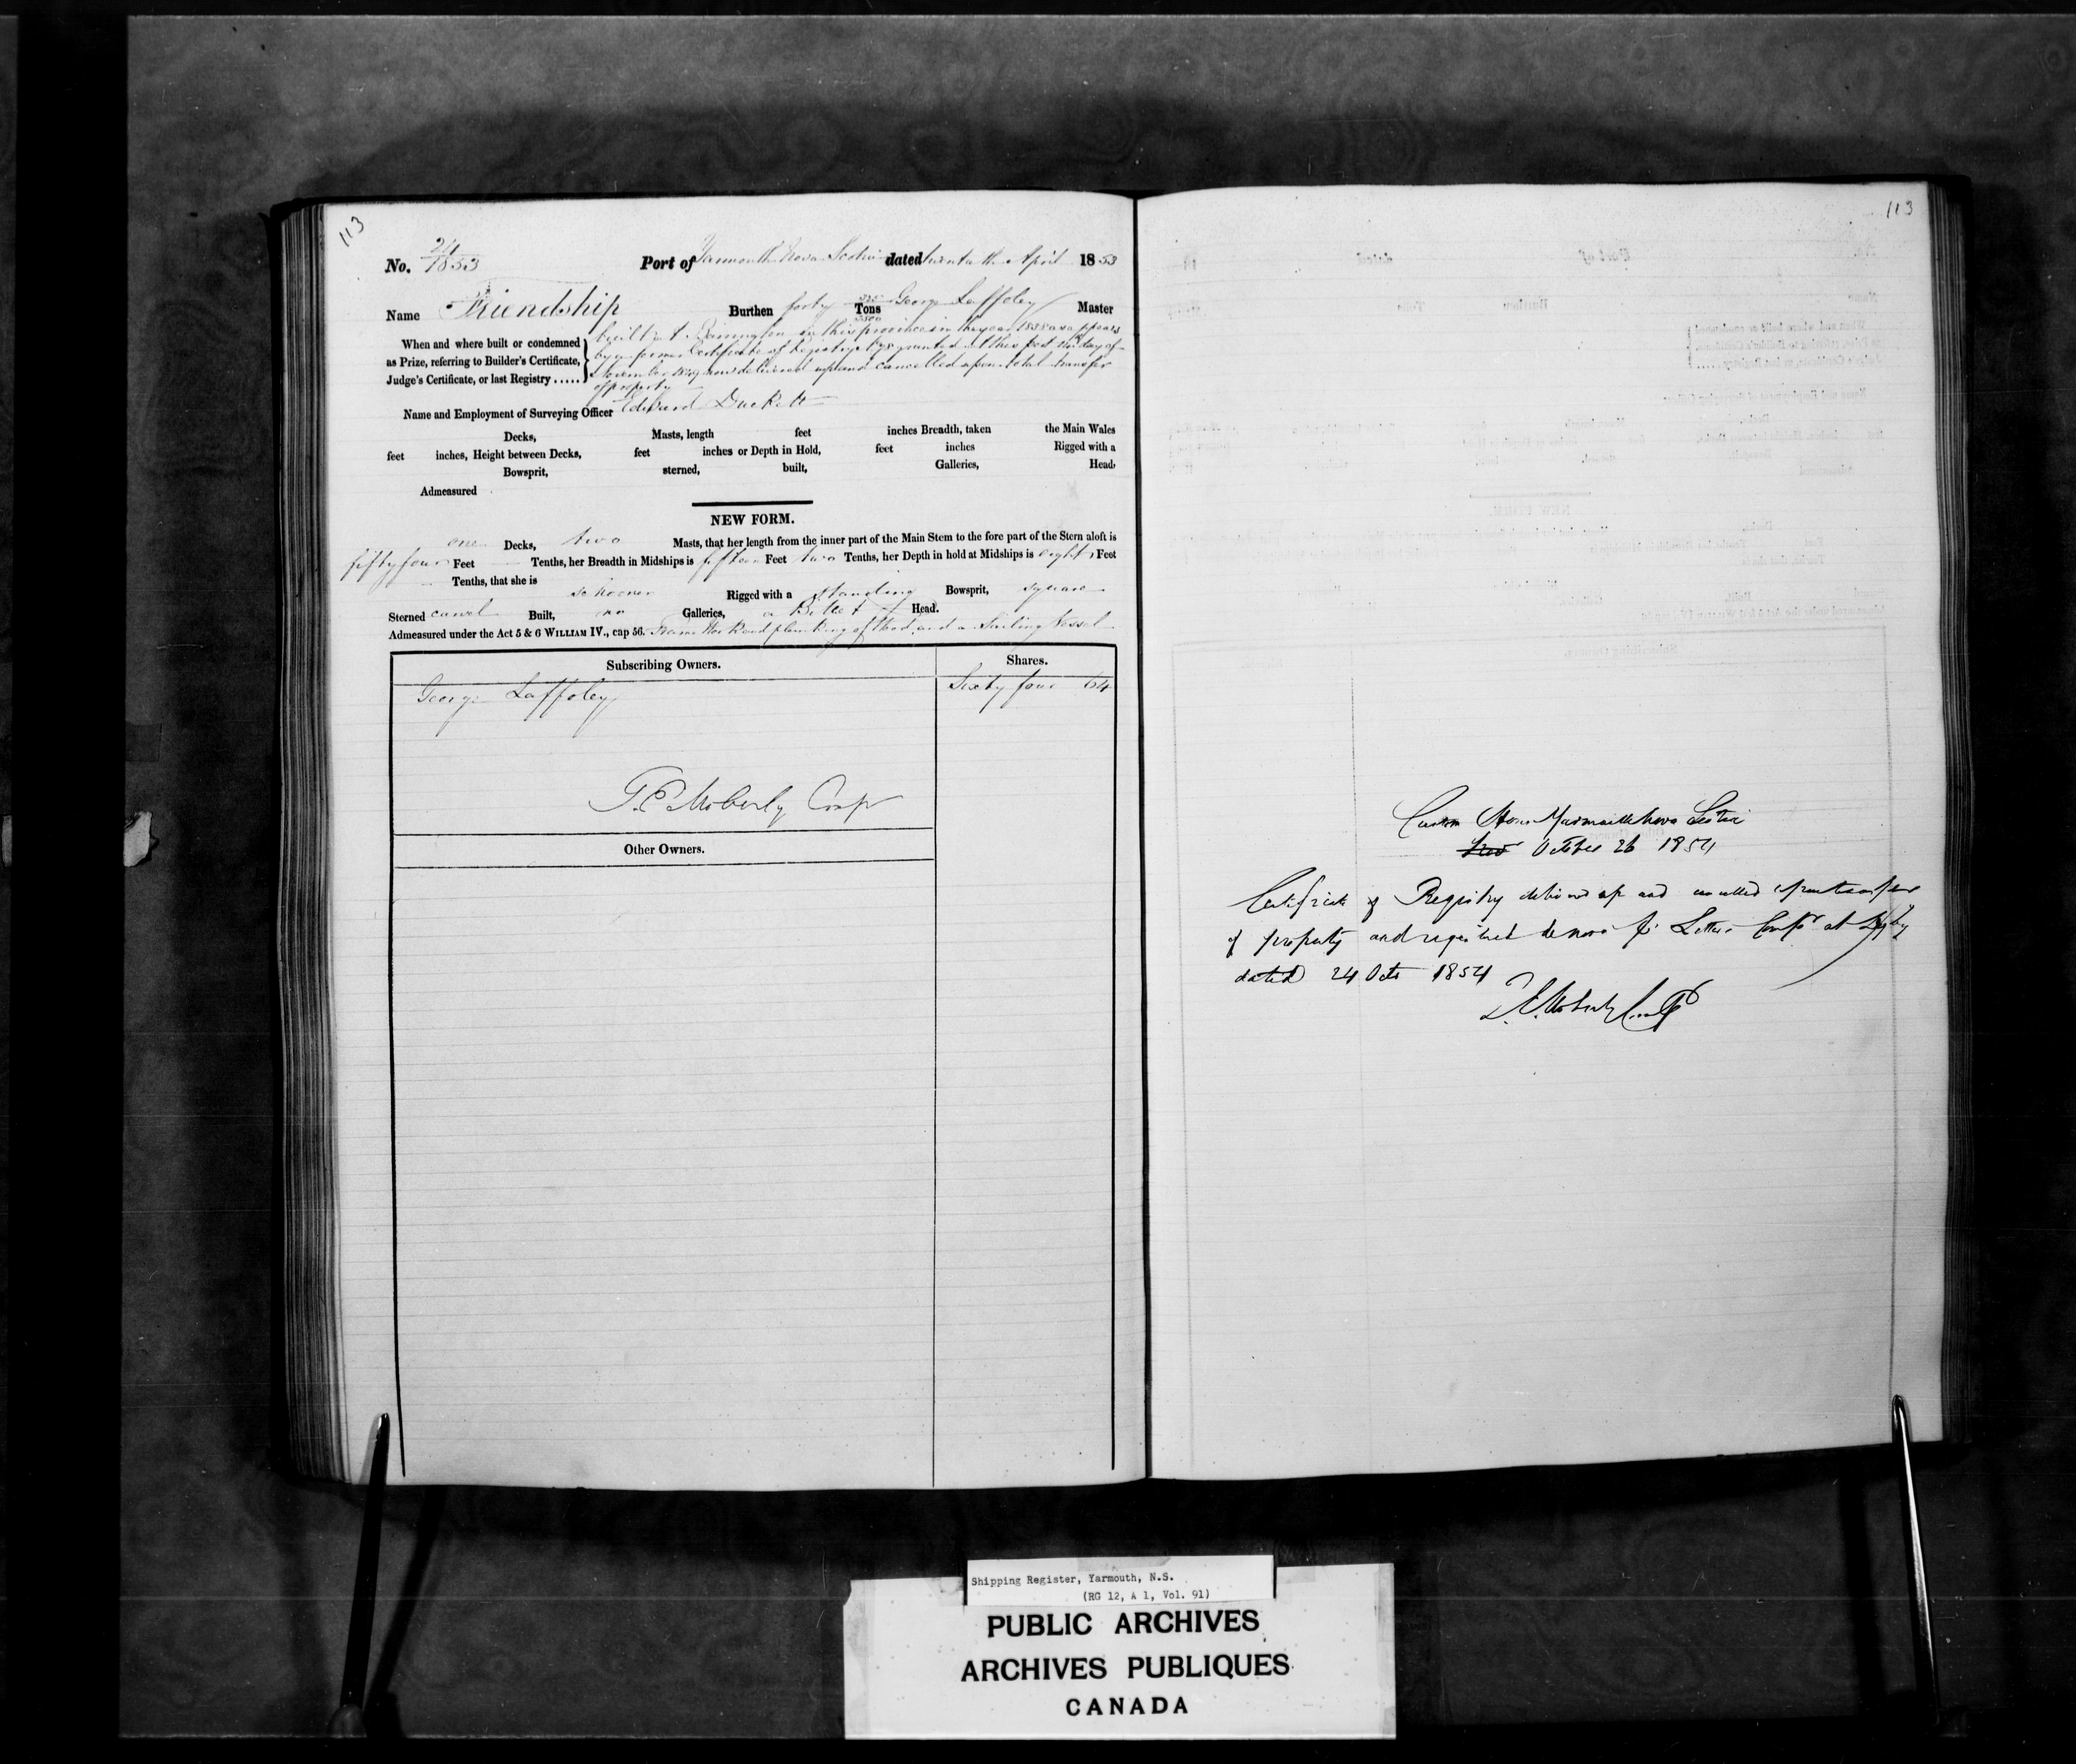 113
No. 24/1853 Port of Yarmouth Nova Scotia dated twentieth April 1853
Name Friendship Burthen forty Tons George Laffoley Master
When and where built or condemned
as Prize, referring to Builder's Certificate,
Judge's Certificate, or last Registry .....
built at Barrington in this province in the year 1838 as appears
by a former Certificate of Registry granted at this port day of
November 1849 now delivered up and cancelled upon total transfer
of property
Name and Employment of Surveying Officer Edward Duckett
Decks, Masts, length feet inches Breadth, taken the Main Wales
feet inches, Height between Decks, feet inches or Depth in Hold, feet inches Rigged with a
Bowsprit, sterned, built, Galleries, Head,
Admeasured
NEW FORM.
one Decks, two Masts, that her length from the inner part of the Main Stem to the fore part of the Stern aloft is
fifty four Feet Tenths, her Breadth in Midships is fifteen Feet two Tenths, her Depth in hold at Midships is eight Feet
Tenths, that she is schooner Rigged with a standing Bowsprit, square
Sterned carvel Built, no Galleries, a Billet Head.
Admeasured under the Act 5 & 6 WILLIAM IV., cap 56. Frame Work and planking of Wood and a Sailing Vessel
Subscribing Owners. Shares.
George Laffoley Sixty four 64
T. E. Moberly Comp
Other Owners.
113
Custom House Yarmouth Nova Scotia
October 26 1854
Certificate of Registry delivered up and cancelled upon transfer
of property and registered de novo Letter Compr at Digby
dated 24 Oct 1854
T. E. Moberly Comp
Shipping Register, Yarmouth, N.S.
(RG 12, A 1, Vol. 91)
PUBLIC ARCHIVES
ARCHIVES PUBLIQUES
CANADA